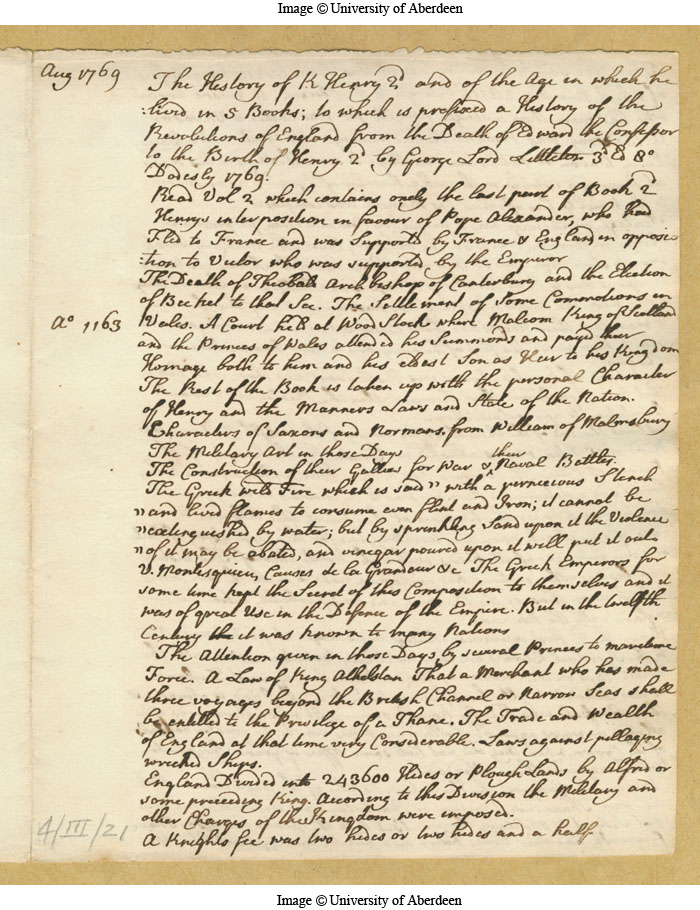 Image © University of Aberdeen
Aug 1769
The History of K Henry 2d and of the Age in which he
:lived in 5 Books; to which is prefixed a History of the
Revolutions of England from the Death of Edward the Confessor
to the Birth of Henry 2d by George Lord Littleton 3d Ed 8o
Dodesly 1769.
Read Vol 2 which contains onely the last part of Book 2d
Henrys interposition in favour of Pope Alexander, who had
Fled to France and was Supported by France & England in opposi
:tion to Victor who was supported by the Emperor
The Death of Theobald Archbishop of Canterbury and the Election
of Becket to that See. The Settlement of some Commotions in
Ao 1163
Wales. A Court held at Wood Stock where Malcom King of Scotland
and the Princes of Wales attended his Summonds and payed their
Homage both to him and his eldest Son as Heir to his Kingdom
The Rest of the Book is taken up with the personal Character
of Henry and the Manners Laws and State of the Nation.
Characters of Saxons and Normans. from William of Malmsbury
The Military Art in those Days
The Construction of their Gallies for War & their Naval Battles.
The Greek wild Fire which is said " with a pernicious Stench
" and livid flames to consume even flint and Iron; it cannot be
" extinguished by water; but by sprinkling Sand upon it the Violence
" of it may be abated, and vinegar poured upon it will put it out
V. Montesquieu, Causes de la Grandeur &c The Greek Emperors for
some time kept the Secret of this Composition to themselves and it
was of great Use in the Defence of the Empire. But in the twelfth
Century the it was known to many Nations
The Attention given in those Days by several Princes to maritime
Force. A Law of King Athelstan That a Merchant who has made
three voyages beyond the British Channel or Narrow Seas shall
be entitled to the Privilege of a Thane. The Trade and Wealth
of England at that time very Considerable. Laws against pillaging
wrecked Ships.
England Divided into 243600 Hides or Plough Lands by Alfred or
some preceeding King. According to this Division the Military and
other Charges of the Kingdom were imposed.
A Knights fee was two hides or two hides and a half
4/III/21
Image © University of Aberdeen